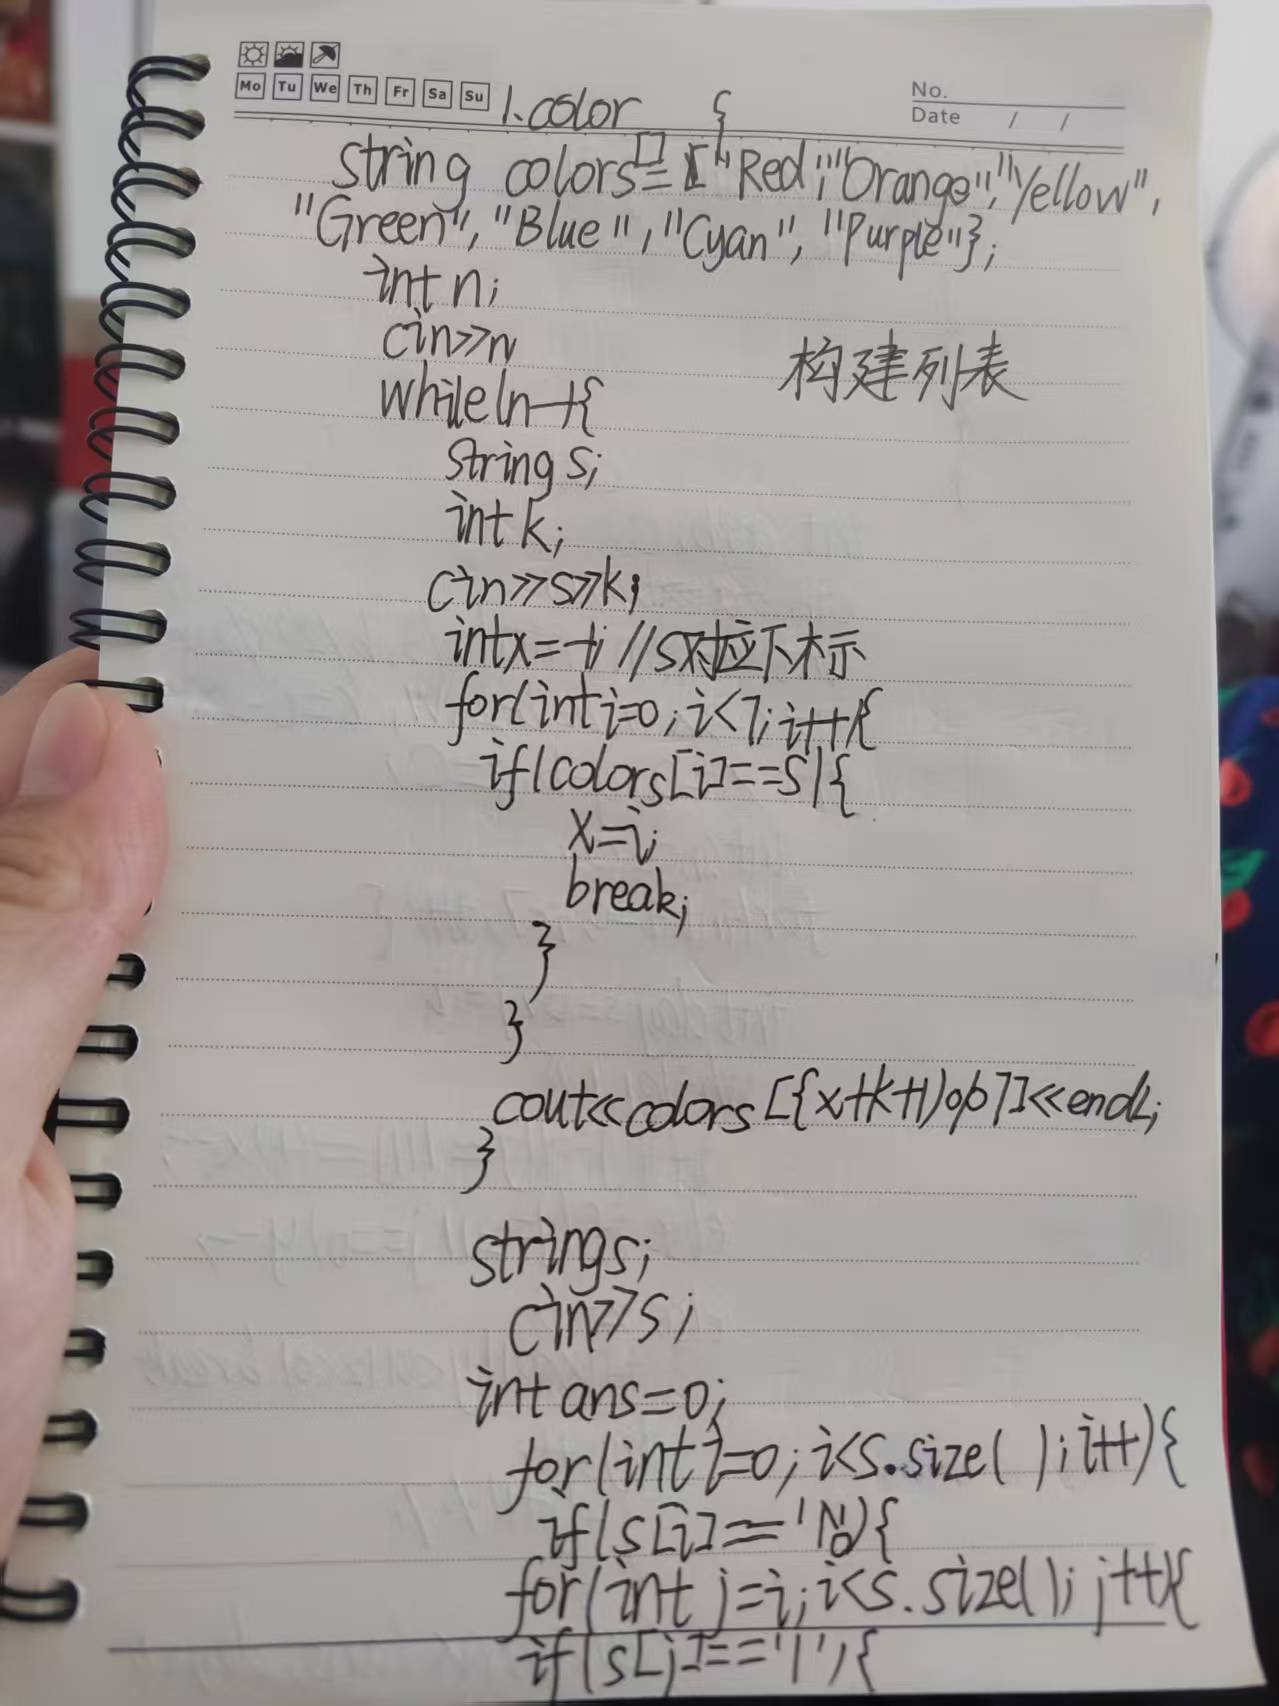 Mo Tu We Th Fr Sa Su
No.
Date / /
1.color
string colors[]={"Red","Orange","Yellow",
"Green","Blue","Cyan","Purple"};
int n;
cin>>n
构建列表
while(n--){
string s;
int k;
cin>>s>>k;
int x=-1; //s对应下标
for(int i=0;i<7;i++){
if(colors[i]==s){
x=i;
break;
}
}
cout<<colors[(x+k+1)%7]<<endl;
}
string s;
cin>>s;
int ans=0;
for(int i=0;i<s.size();i++){
if(s[i]=='N'){
for(int j=i;i<s.size();j++){
if(s[j]=='1'){